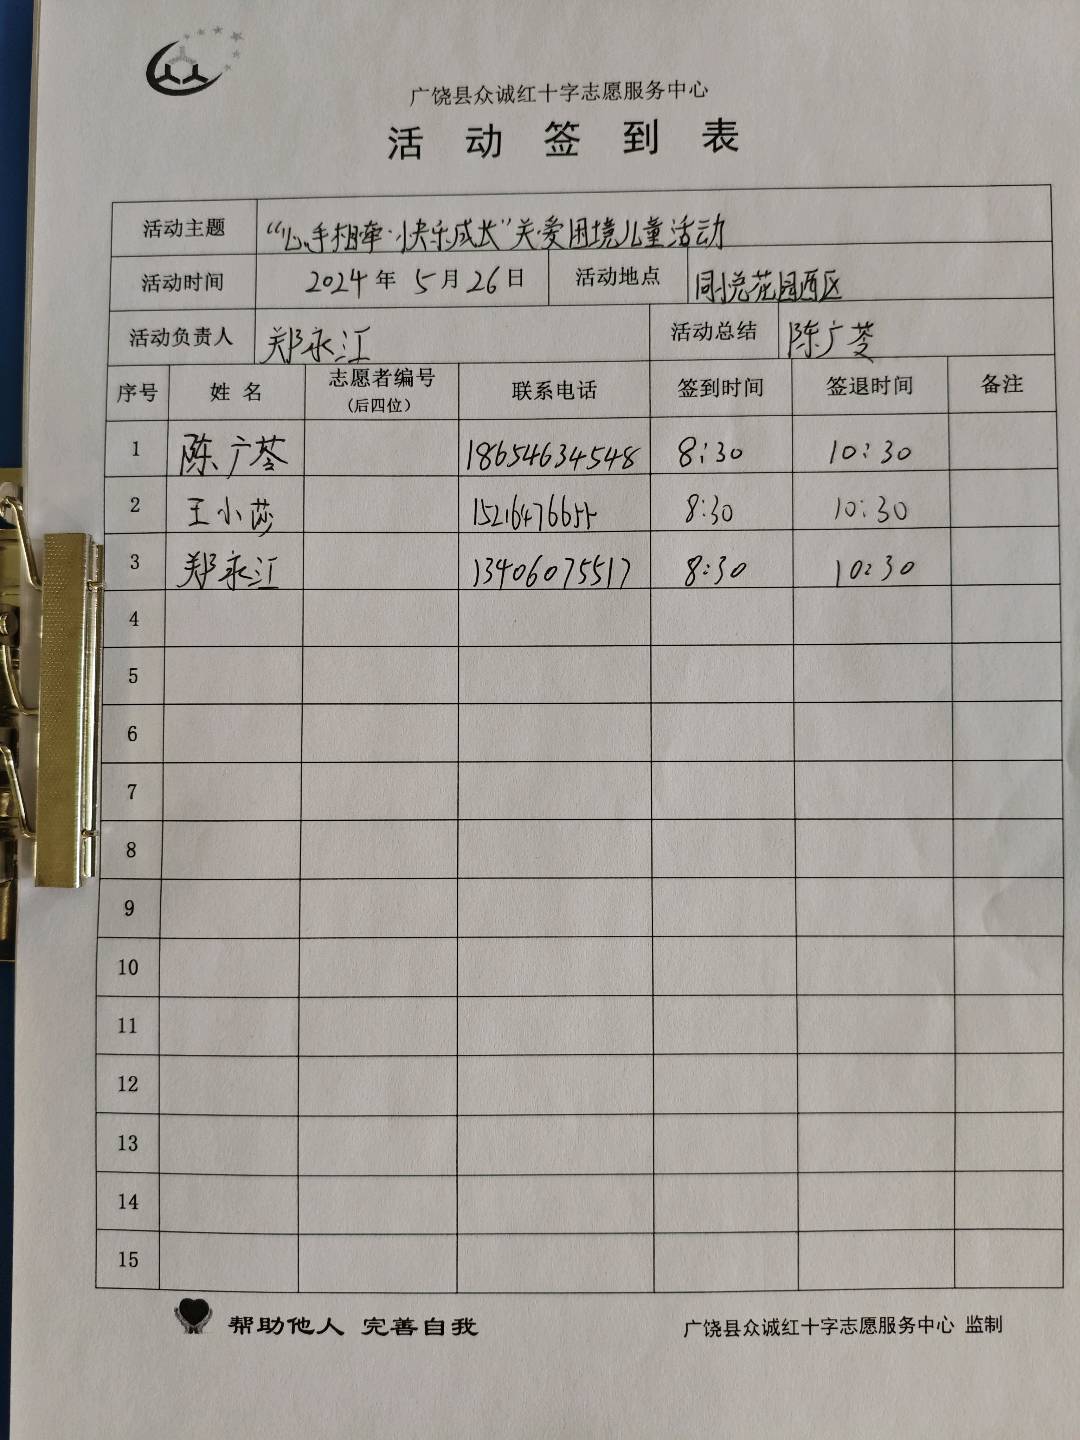 广饶县众诚红十字志愿服务中心
活动签到表
活动主题 “心手相牵·快乐成长”关爱困境儿童活动
活动时间 2024年5月26日 活动地点 同悦花园西区
活动负责人 郑永江 活动总结 陈广苓
序号 姓名 志愿者编号（后四位） 联系电话 签到时间 签退时间 备注
1 陈广苓 18654634548 8:30 10:30
2 王小莎 8:30 10:30
3 郑永江 13406075517 8:30 10:30
4
5
6
7
8
9
10
11
12
13
14
15
帮助他人 完善自我 广饶县众诚红十字志愿服务中心 监制